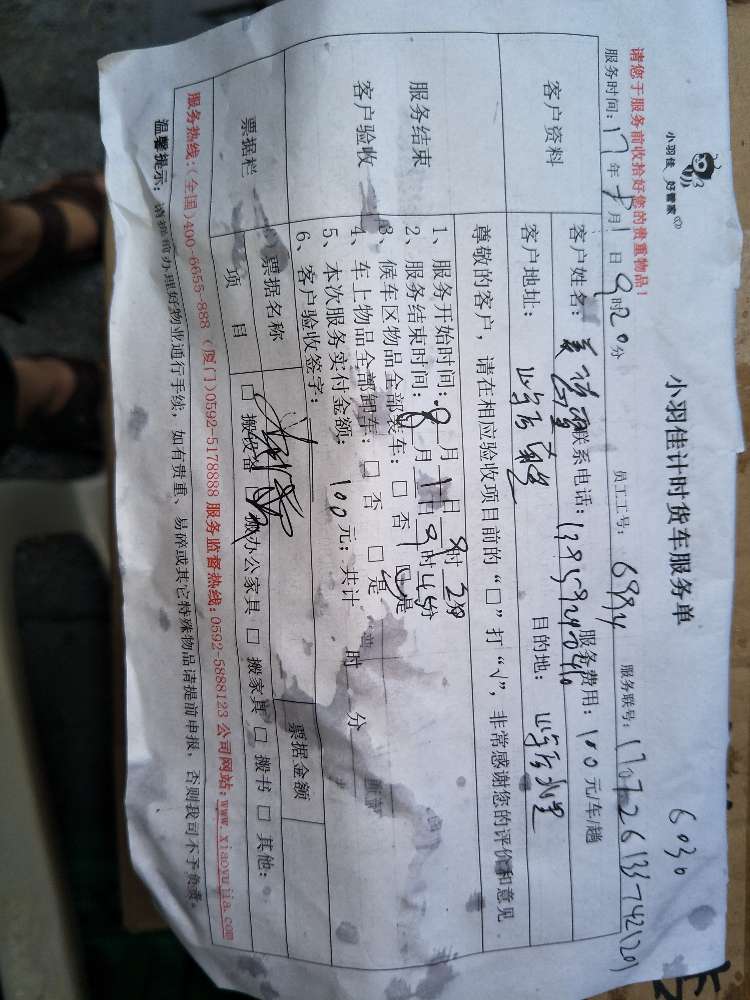 6030
小羽佳 好管家
小羽佳计时货车服务单
请您于服务前收拾好您的贵重物品!
员工工号: 6994 服务联号: 170726135742(20)
服务时间: 17年8月1日9时20分
服务费用: 100元/车/趟
客户资料
客户姓名: 联系电话:
客户地址: 目的地:
尊敬的客户,请在相应验收项目前的“□”打“√”,非常感谢您的评价和意见.
服务结束
客户验收
1、服务开始时间: 8月1日9时20分
2、服务结束时间: 8月1日9时45分
3、候车区物品全部装车: □否 □是
4、车上物品全部卸车: □否 □是
5、本次服务实付金额: 100元; 共计 时 分
6、客户验收签字:
票据栏
票据名称 票据金额
项目 □搬设备 □搬办公家具 □搬家具 □搬书 □其他:
服务热线:(全国)400-6655-888 (厦门)0592-5178888 服务监督热线:0592-5888123 公司网站:www.xiaoyujia.com
温馨提示: 请提前办理好物业通行手续, 如有贵重、易碎或其它特殊物品请提前申报, 否则我司不予负责。